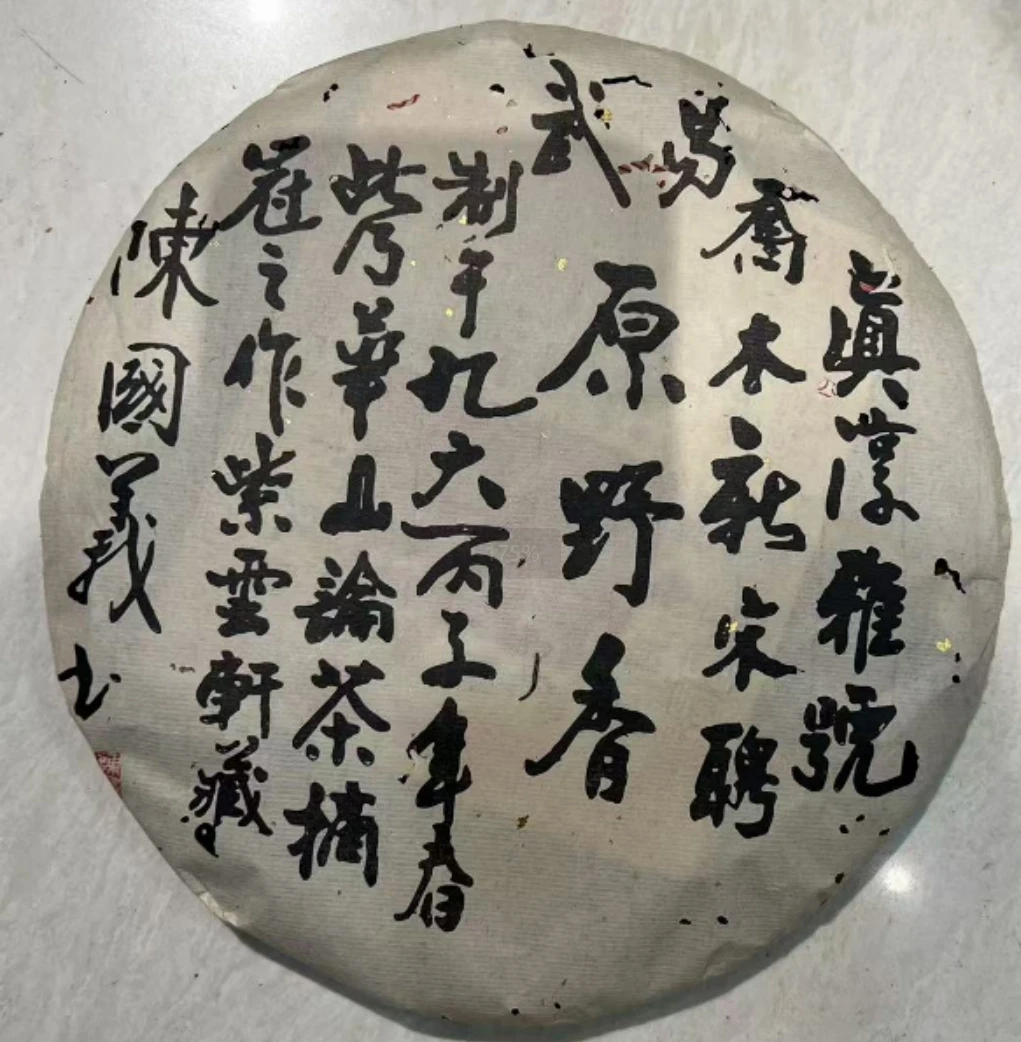 眞淳雅號
喬木新宋聘
易武
原野香
制于九六丙子年春
此乃華山論茶摘
冠之作紫雲軒藏
陳國義书